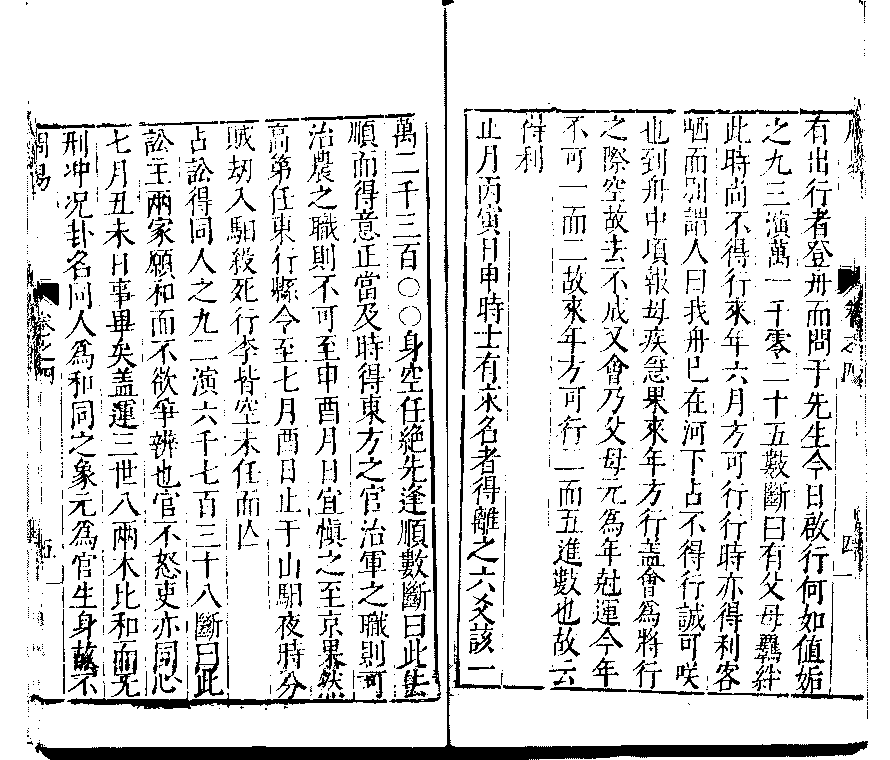 有出行者登舟而問于先生今日啟行何如值姤
之九三演萬一千零二十五數斷曰有父母羈絆
此時尚不得行來年六月方可行行時亦得利客
哂而別謂人曰我舟已在河下占不得行誠可咲
也到舟中項報母疾急果來年方行蓋會為將行
之際空故去不成又會乃父母元為年尅運今年
不可一而二故來年方可行二而五進數也故云
得利
正月丙寅日申時士有求名者得離之六爻該一
卷之四
四
萬二千三百〇〇身空任絶先逢順數斷曰此去
順而得意正當及時得東方之官治軍之職則可
治農之職則不可至申酉月日宜慎之至京果然
高第任東行縣令至七月酉日止于山馹夜時分
賊刼入馹殺死行李皆空未任而亾
占訟得同人之九二演六千七百三十八斷曰此
訟主兩家願和而不欲爭辨也官不怒吏亦同心
七月丑未日事畢矣盖運三世八兩木比和而无
刑冲况卦名同人為和同之象元為官生身故不
周易
卷之四
五